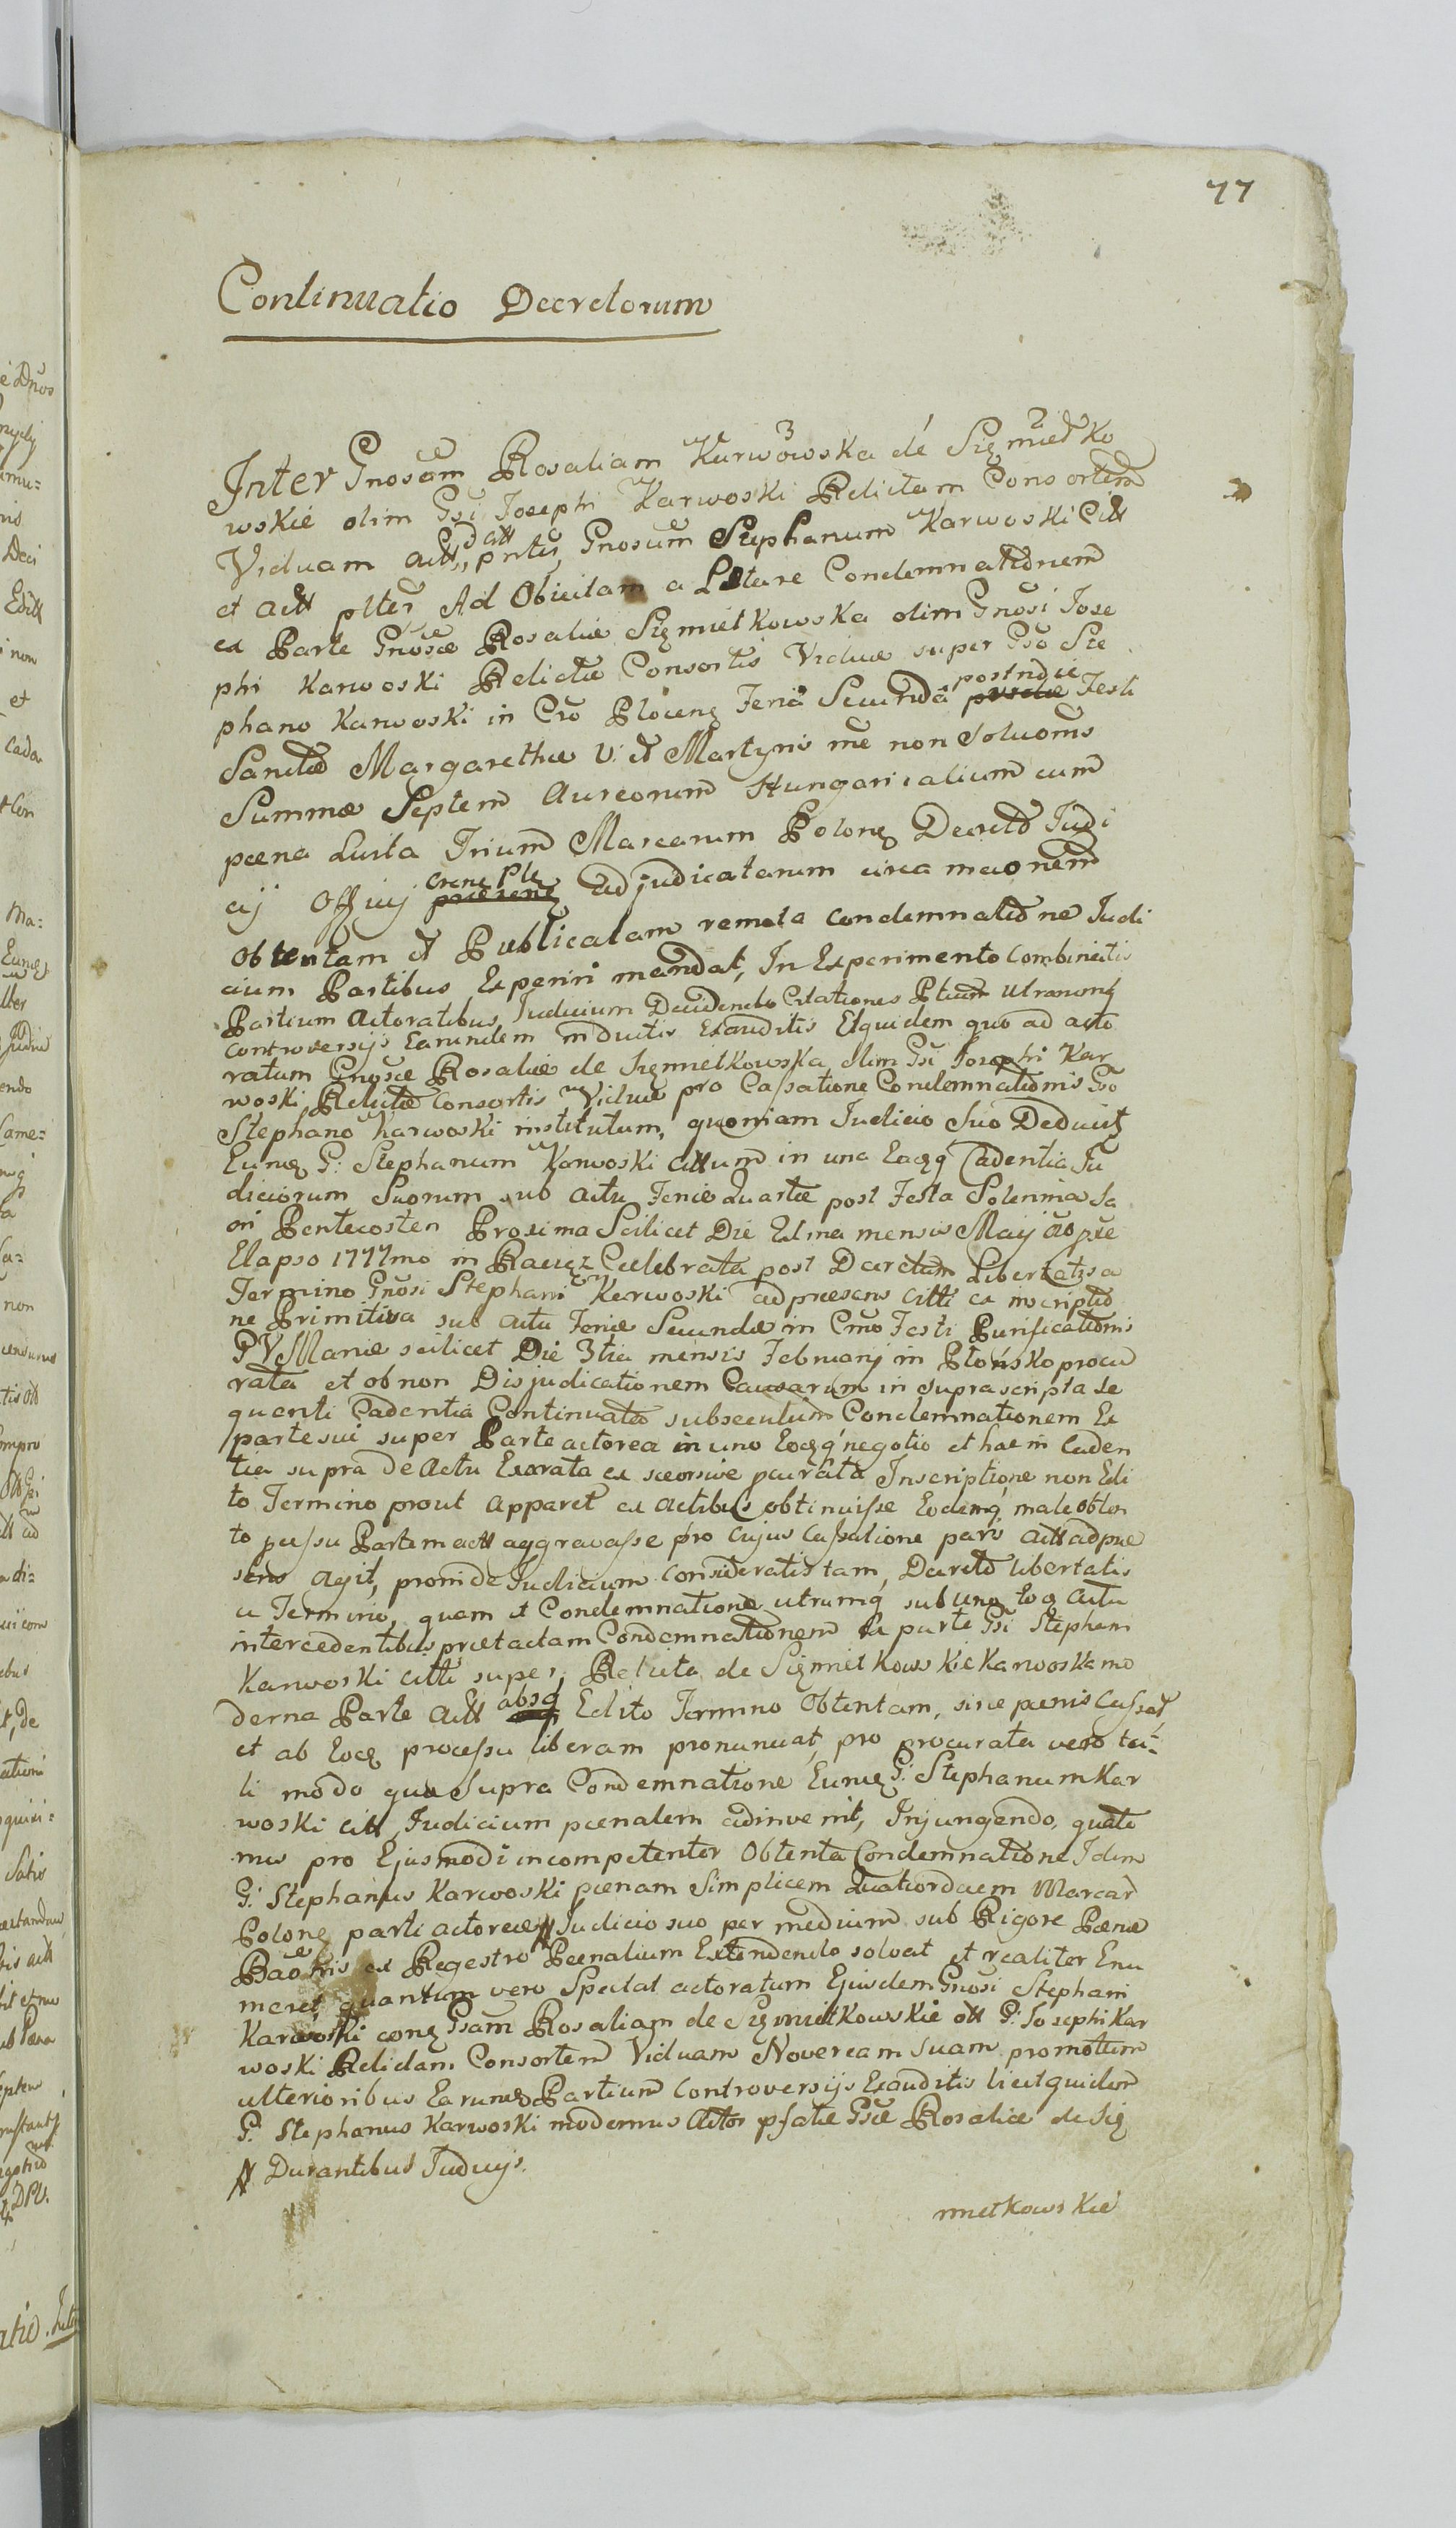 77
Continuatio Decretorum
Inter Gnosam Rosaliam Karwowska de Sigmietko
wskie olim Gsi Josephi Karwoski Relictam Consortem
Viduam Actt et citt pntes, Gnosum Stephanum Karwoski Citt
et Actt plter Ad Obicitam a Latere Condemnationem
ex Parte Gnosæ Rosaliæ Sigmietkowska olim Gnosi Jose
phi Karwoski Relictæ Consortis Viduæ super Gso Ste
phano Karwoski in Cro Ploceng Feria Secunda postridie Festi
Sanctæ Margarethæ V. et Martyris me non Solvonis
Summæ Septem Aureorum Hungaricalium cum
pœna Luita Trium Marcarum Polong Decreto Judi
cij Officij adjudicatarum circa maonem
Obtentam et Publicatam remota condemnatione Judi
cium Partibus Experiri mandat, In Experimento Combinatis
Partium Actoratibus, Judicium Decidendo Citationes Ptium Utrarumq
Controversijs Earundem inductis Exauditis Etquidem quo ad acto
ratum Gnosæ Rosaliæ de Sigmietkowska olim Gsi Josephi Kar
woski Relictæ Consortis Viduæ pro Cassatione Condemnationis Gso
Stephano Karwoski institutum, quoniam Judicio Suo Deducit
Eumq G: Stephanum Karwoski Cittum in una Eaqq Cadentia Ju
diciorum Suorum sub Actu Feriæ Quartæ post Festa Solennia Sa
cri Pentecosten Proxima Scilicet Die 21ma mensis Maij ao præ
Elapso 1777mo in Raciąz Celebrata post Decretum Libertatis a
Termino Gnosi Stephani Karwoski ad præsens Citti ex inscriptio
ne Primitiva sub Actu Feriæ Secundæ in Cmo Festi Purificationis
B V Mariæ scilicet Die 3tia mensis Februarij in Płońsko procu
rata et ob non Disjudicationem Causarum in suprascripta se
quenti Cadentia Continuatio subsecutum Condemnationem Ex
parte sui super Parte actorea in uno Eoqq negotio et hac in Caden
tia supra de Actu Exarata ex seorsive pcurata Inscriptione non Edi
to Termino prout apparet ex actibus obtinuisse Eodemq male obten
to pcessu Partem actt aggravasse pro cujus Cassatione pars actt ad præ
sens agit, proinde Judicium consideratis tam, Decreto libertatis
a Termino, quam et Condemnatione utrumq sub uno Eoq Actu
intercedentibus prætactam Condemnationem Ex parte Gsi Stephani
Karwoski citti super Relicta de Sigmietkowskie Karwoska mo
derna Parte Actt absq Edito Termino Obtentam, sine pœnis Cassat
et ab Eoq processu liberam pronunciat, pro procurata vero ta-
li modo qua supra Condemnatione Eumq G: Stephanum Kar
woski citt Judicium pœnalem adinvenit, Injungendo, quate
nus pro Ejusmodi incompetenter Obtenta Condemnatione Idem
G: Stephanus Karwoski pœnam Simplicem Quatuordecim Marcar
Polong parti actoreæ # Judicio suo per medium sub Rigore Pœnæ
Baonis ex Regestro Pœnalium Extendendo solvat et realiter Enu
meret quantum vero Spectat actoratum Ejusdem Gnosi Stephani
Karwoski cong Gsam Rosaliam de Sigmietkowskie olt G: Josephi Kar
woski Relictam Consortem Viduam Novercam Suam promotum
ulterioribus Earumq Partium Controversijs Exauditis licet quidem
G: Stephanus Karwoski modernus Actor pfatæ Gsæ Rosaliæ de Sig
# Durantibus Judicijs.
mietkowskie